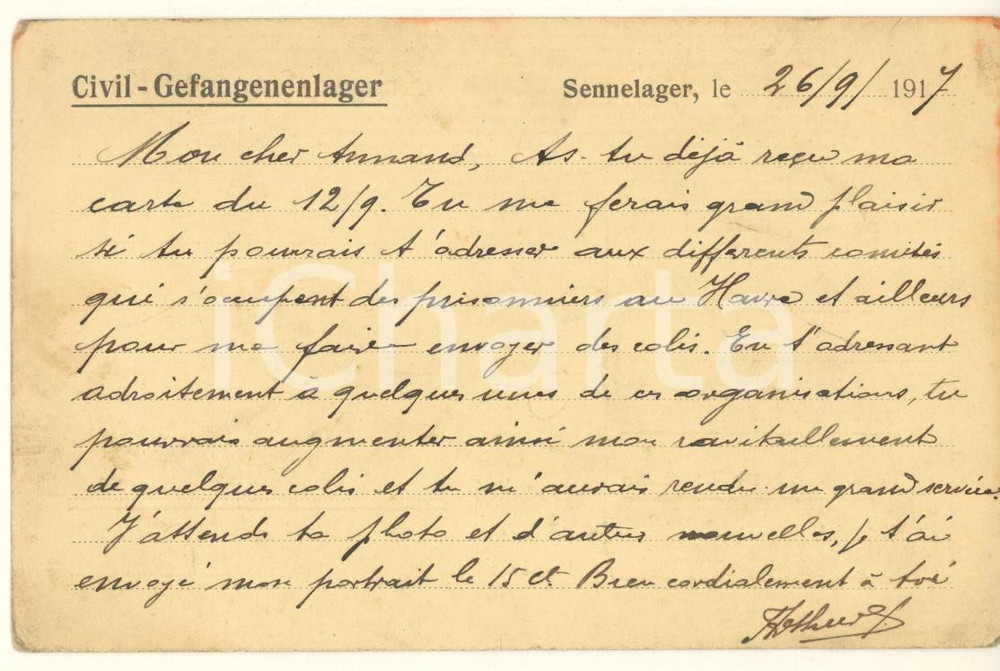 Civil-Gefangenenlager
Sennelager, le 26/9/ 1917
Mon cher Armand, As-tu déjà reçu ma
carte du 12/9. Tu me ferais grand plaisir
si tu pourrais t'adresser aux differents comités
qui s'occupent des prisonniers au Havre et ailleurs
pour me faire envoyer des colis. En t'adressant
adroitement à quelques unes de ces organisations, tu
pourrais augmenter ainsi mon ravitaillement
de quelques colis et tu m'aurais rendu un grand service.
J'attends ta photo et d'autres nouvelles, je t'ai
envoyé mon portrait le 15 ct. Bien cordialement à toi
iCharta